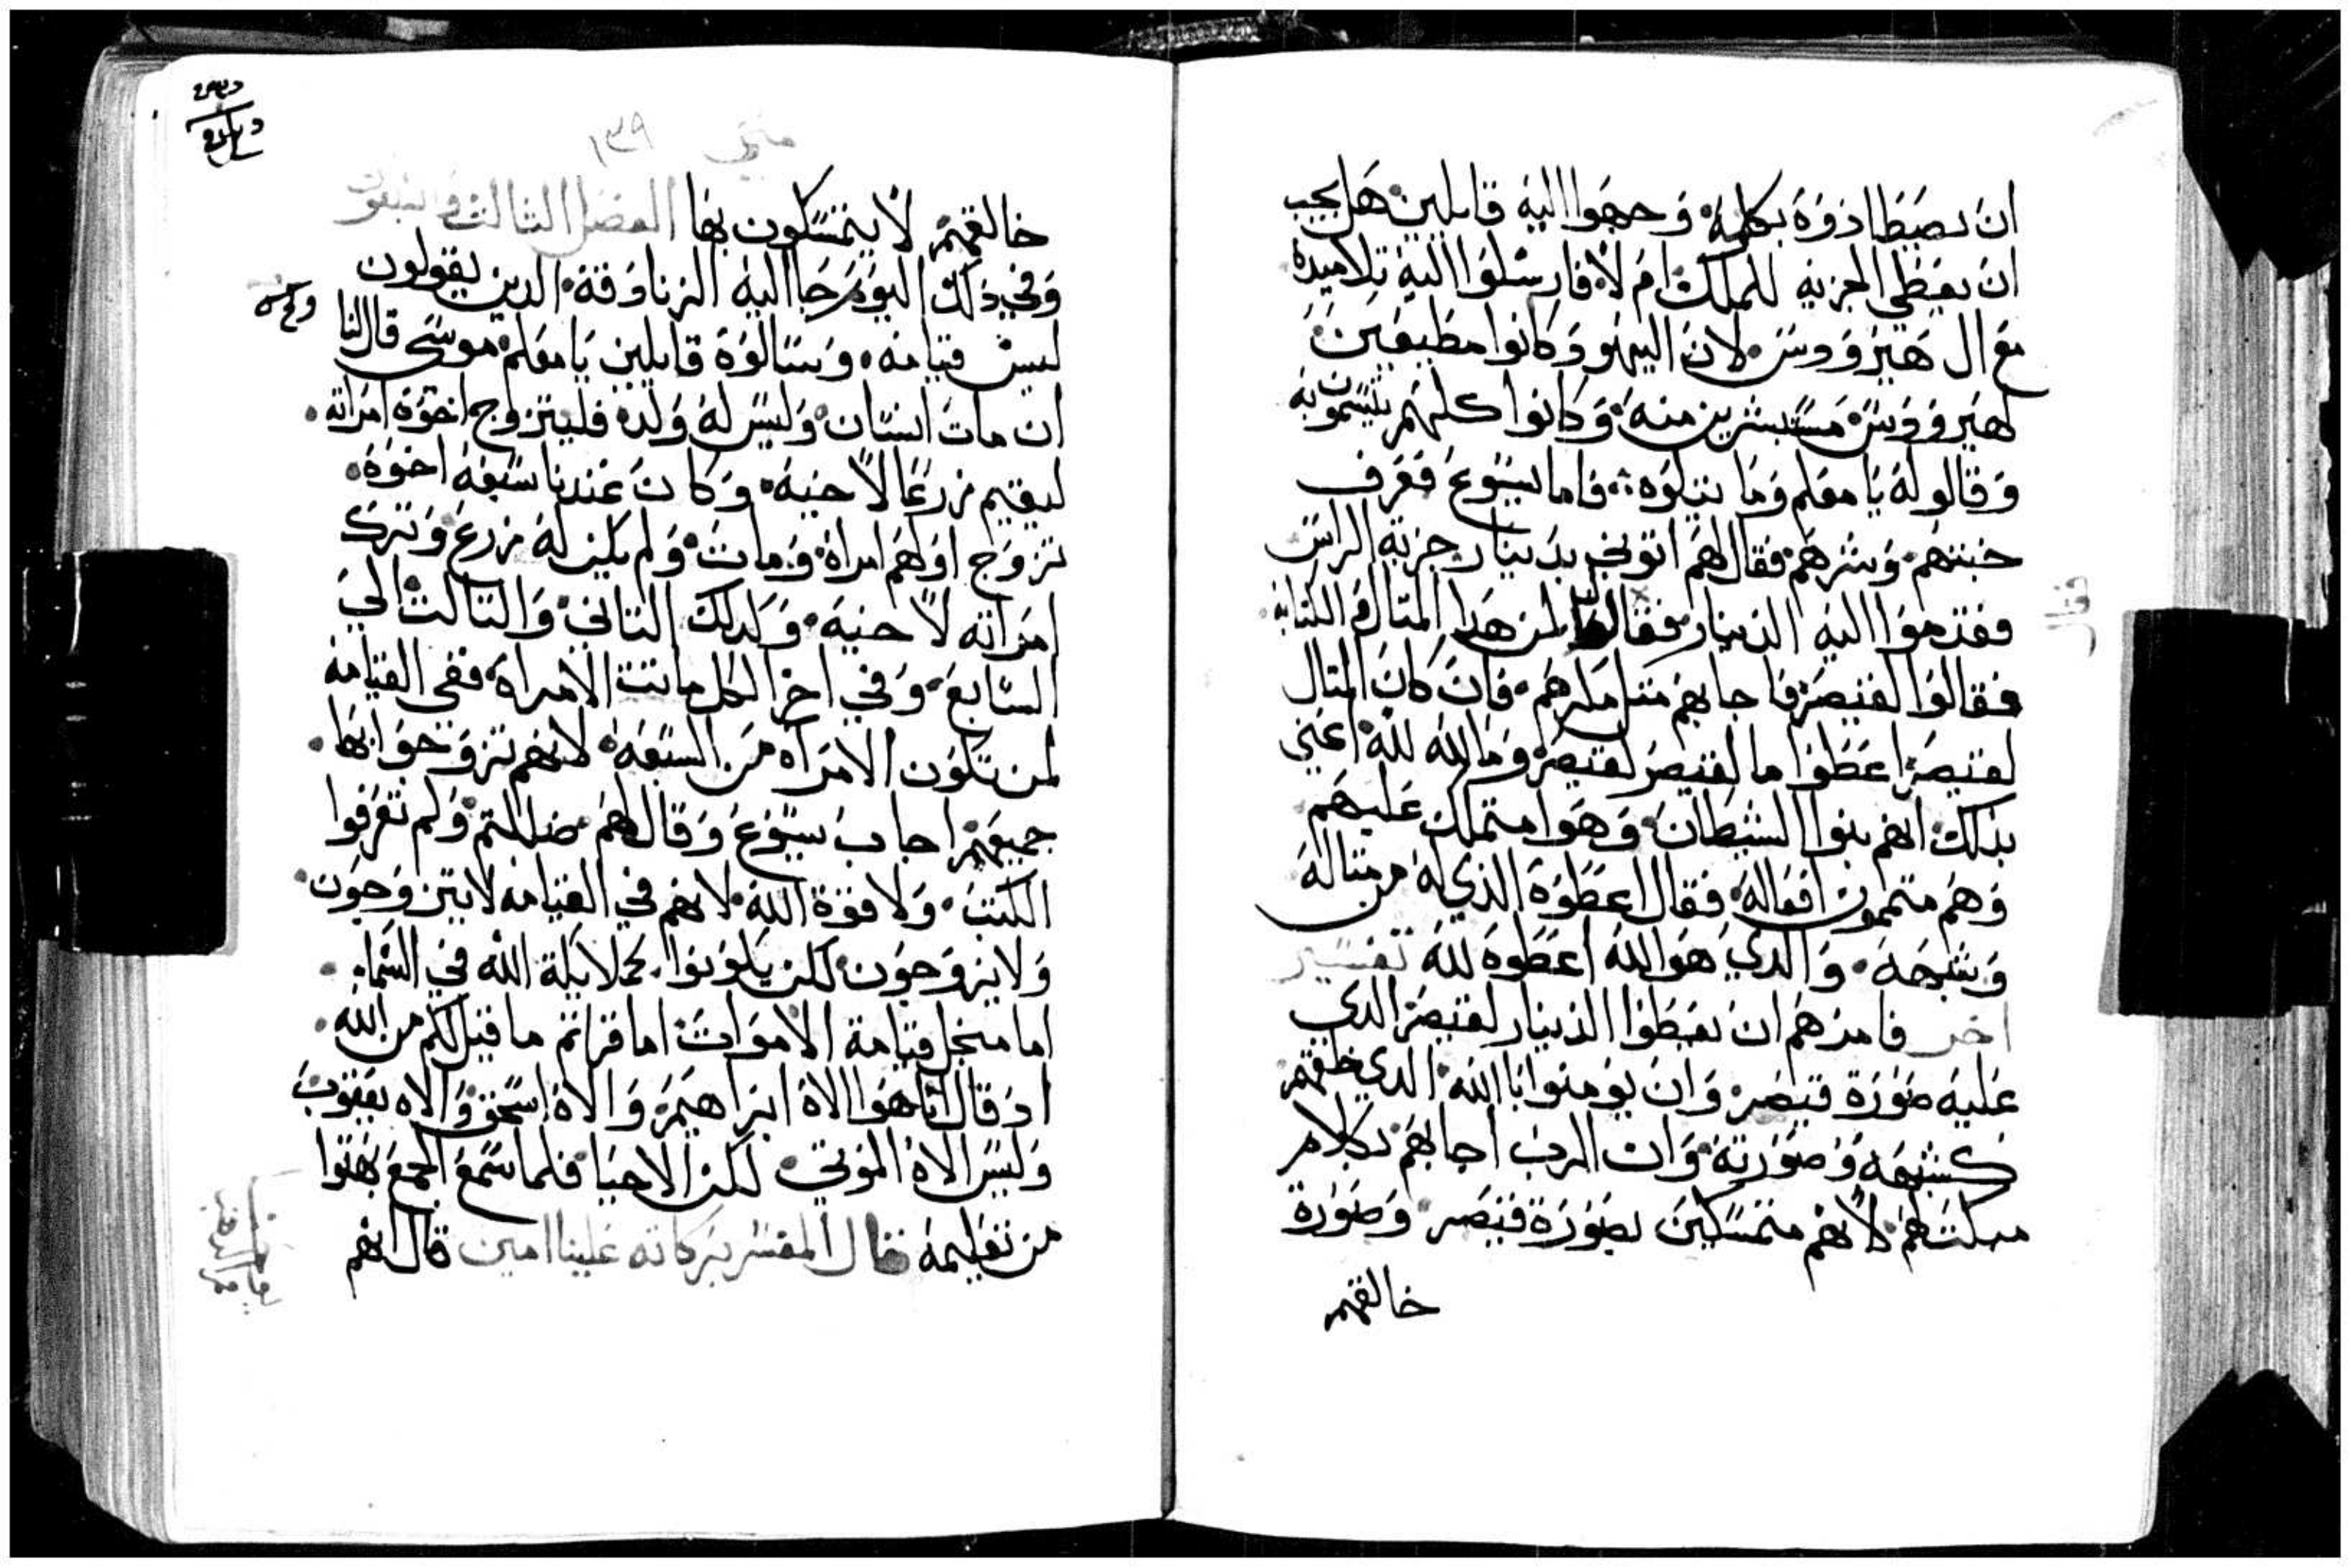 ان يصطادوه بكلمه وجهوا اليه قايلين هل يجب
ان يعطي الجزيه للملك ام لا فارسلوا اليه تلاميده
مع ال هيرودس لان اليهود كانوا مطيعين
لهيرودس مستبشرين منه وكانوا كلهم يتسمون به
وقالو له يا معلم وما يتلوه فاما يسوع فعرف
خبتهم وشرهم فقال لهم اتوني بدينار جزية الراس
فقدموا اليه الدينار فقال لمن هدا المتال والكتابه
فقالوا لقيصر فاجابهم متل مكرهم فان كان المتال
لقيصر اعطوا ما لقيصر لقيصر وما لله لله اعني
بذلك انهم بنوا الشيطان وهوا متملك عليهم
وهم متممون افعاله فقال اعطوه الذي له من متاله
وشبهه والدي هو الله اعطوه لله تفسير
اخر فامرهم ان يعطوا الدينار لقيصر الدي
عليه صورة قيصر وان يومنوا بالله الدي خلقهم
كشبهه وصورته وان الرب اجابهم بكلام
مبكت لهم لانهم متمسكين بصورة قيصر وصورة
خالقهم
متي ١٣٩
خالقهم لا يتمسكون بها الفصل التالت والتسعون
وفي ذلك اليوم جا اليه الزنادقة الدين يقولون
ليس قيامه وسالوه قايلين يا معلم موسي قال لنا
ان مات انسان وليس له ولد فليتزوج اخوه امراته
ليقيم زرعا لاخيه وكان عندنا سبعه اخوه
تزوج اولهم امراه ومات ولم يكن له زرع وترك
امراته لاخيه وكدلك التاني والتالت الي
السابع وفي اخر الكل ماتت الامراه ففي القيامه
لمن تكون الامراه من السبعه لانهم تزوجوا بها
جميعهم اجاب يسوع وقال لهم ضللتم ولم تعرفوا
الكتب ولا قوة الله لانهم في القيامه لا يتزوجون
ولا يزوجون لكن يكونوا كملايكة الله في السما
اما من اجل قيامة الاموات اما قراتم ما قيل لكم من الله
اد قال انا هوا الاه ابراهيم والاه اسحق والاه يعقوب
وليس الاه الموتي لكن الاحيا فلما سمع الجمع بهتوا
من تعليمه قال المفسر بركاته علينا امين قال انهم